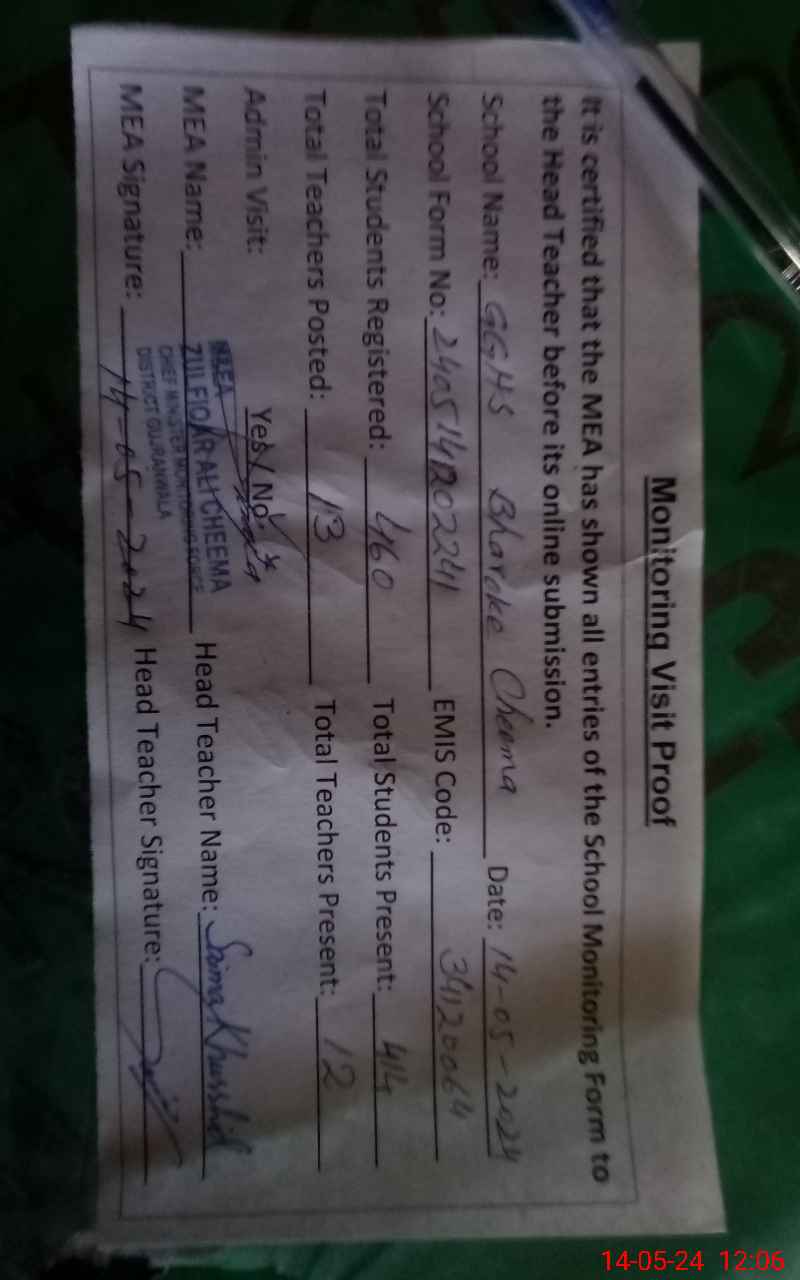 Monitoring Visit Proof
It is certified that the MEA has shown all entries of the School Monitoring Form to
the Head Teacher before its online submission.
School Name: GGHS Bharoke Cheema Date: 14-05-2024
School Form No: 24051412022411 EMIS Code: 34120064
Total Students Registered: 460 Total Students Present: 414
Total Teachers Posted: 13 Total Teachers Present: 12
Admin Visit: Yes / No
MEA
MEA Name: ZULFIQAR ALI CHEEMA Head Teacher Name: Saima Khurshid
CHIEF MINISTER MONITORING FORCE
DISTRICT GUJRANWALA
MEA Signature: 14-05-2024 Head Teacher Signature:
14-05-24 12:06